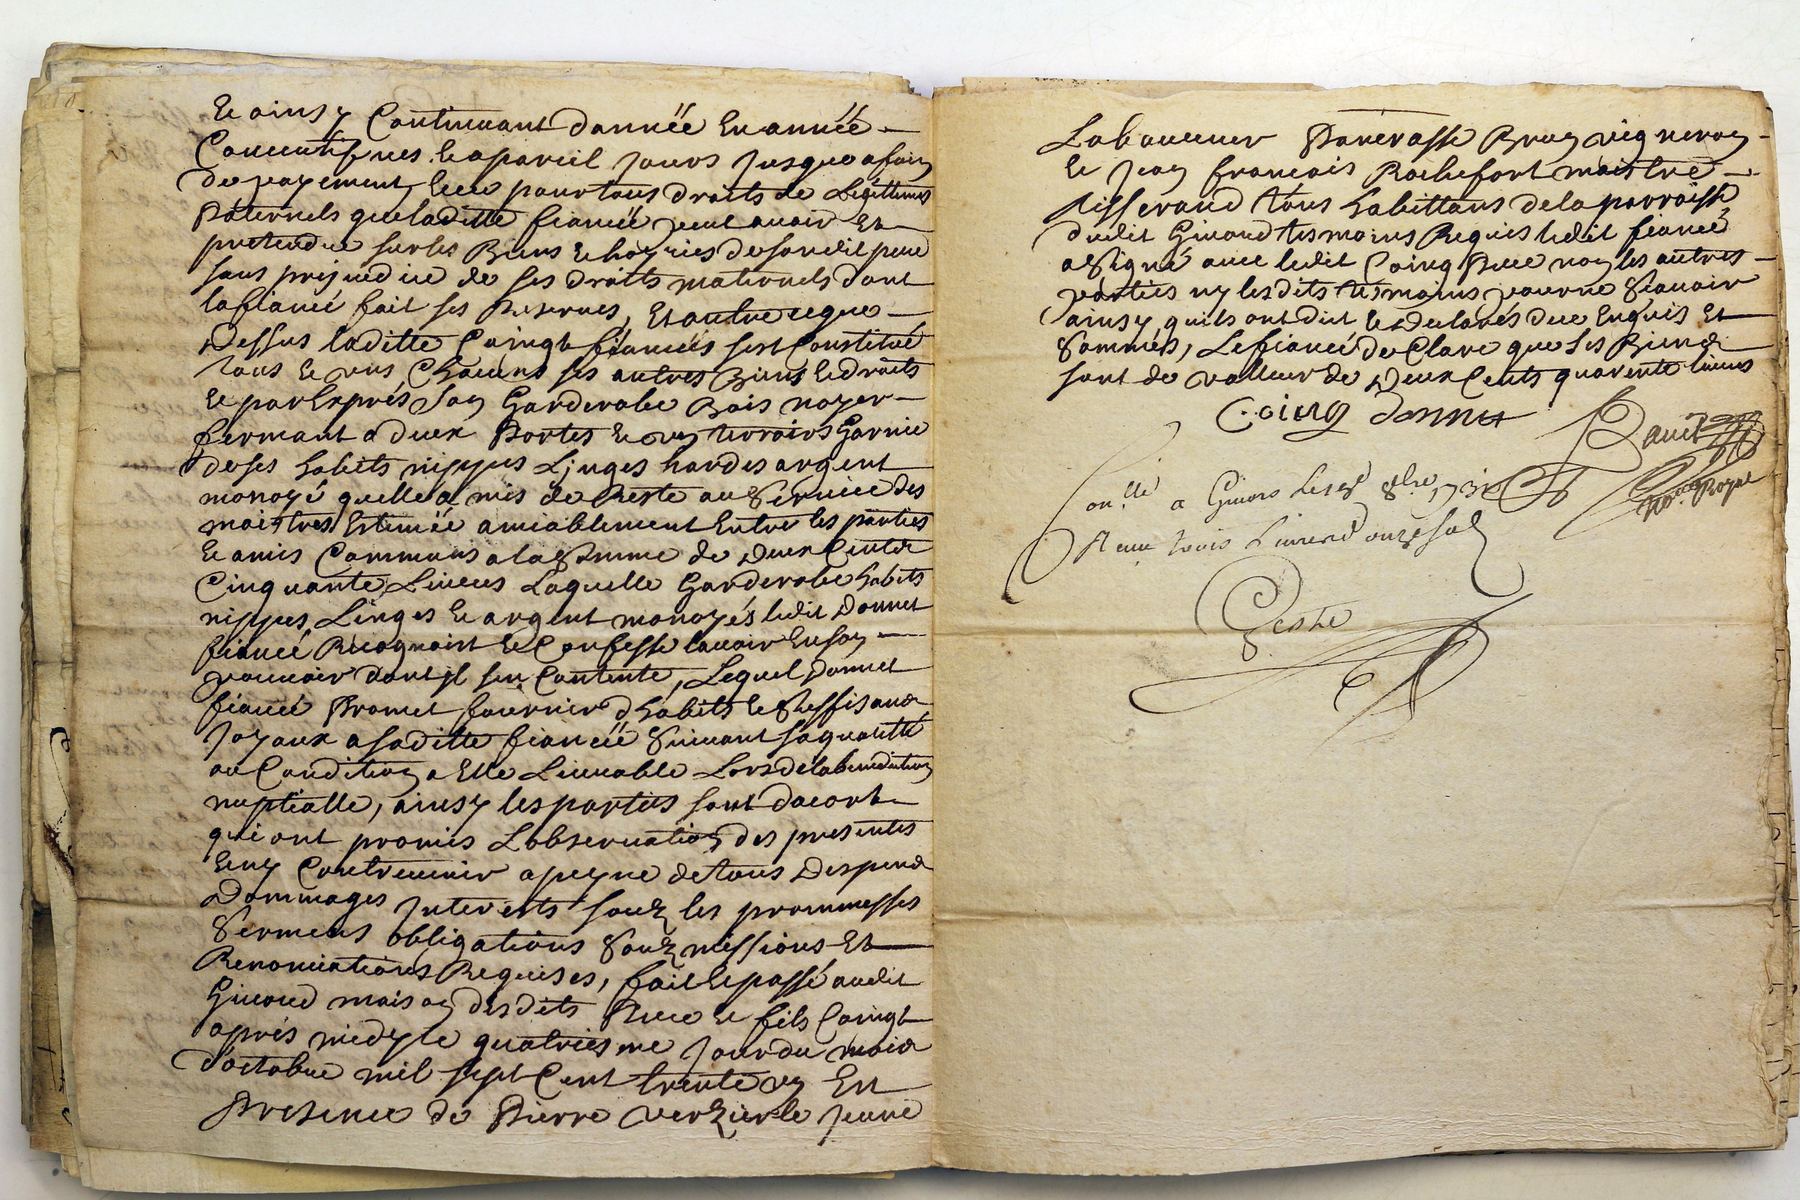 Et ainsy Continuant dannéé En année
Consecutifves et a pareil jours jusques a fain
de payement, et ce pour tous droits de Legittimes
Paternels que laditte fianceé peut avoir Et
pretendre sur les Biens et hoyries de sondit pere
sans prejudice de ses droits maternels dont
la fianceé fait ses Reserves, Et outre ce que
Dessus laditte Coingt fianceés sest Constitué
tous et uns Chacuns ses autres Biens et droits
et par Exprés son Garderobe Bois noyer
fermant a deux Portes et un tirroirs Garnie
de ses habits nippes Linges hardes argent
monoyé quelle a mis de Reste au Service des
maistres Estimeé amiablement Entre les parties
et amis Communs a la Somme de Deux Cents
Cinquante Livres Laquelle Garderobe habits
nippes Linges et argent monoyés ledit Donnet
fiancé Recognoist et Confesse lavoir En son
pouvoir dont jl sen Contente, Lequel Donnet
fiancé Promet fournir d'habits et Suffisans
Joyaux a saditte fianceé Suivant sa qualité
ou Condition a Elle Livrable Lors de la benediction
nuptialle, ainsy les parties sont dacort
qui ont promis Lobservation des presentes
et ny Contrevenir a peyne de tous Despens
Dommages Interests souz les prommesses
Sermens obligations Souzmissions Et
Renonciations Requises, fait et passé audit
Givord maison desdits Pere et fils Coingt
aprés midy le quatriesme jour du mois
d'octobre mil sept Cent trente un En
Presence de Pierre verzier le jeune
Laboureur Pancrasse Brun vigneron
et jean francois Rochefort maistre
tisserand tous habittans de la parroisse
dudit Givord tesmoins Requis ledit fiancé
a Signé avec ledit Coing Pere non les autres
parties ny lesdits tesmoins pour ne Scavoir
ainsy quils ont dict et declarés de ce Enquis Et
Sommés, Le fiancé declare que ses Biens
sont de valleur de Deux Cents quarente livres
Coing Donnet
Not.re Royal
Con.llé a Givors Le 8.bre 1731
Receu trois Livres onze sols